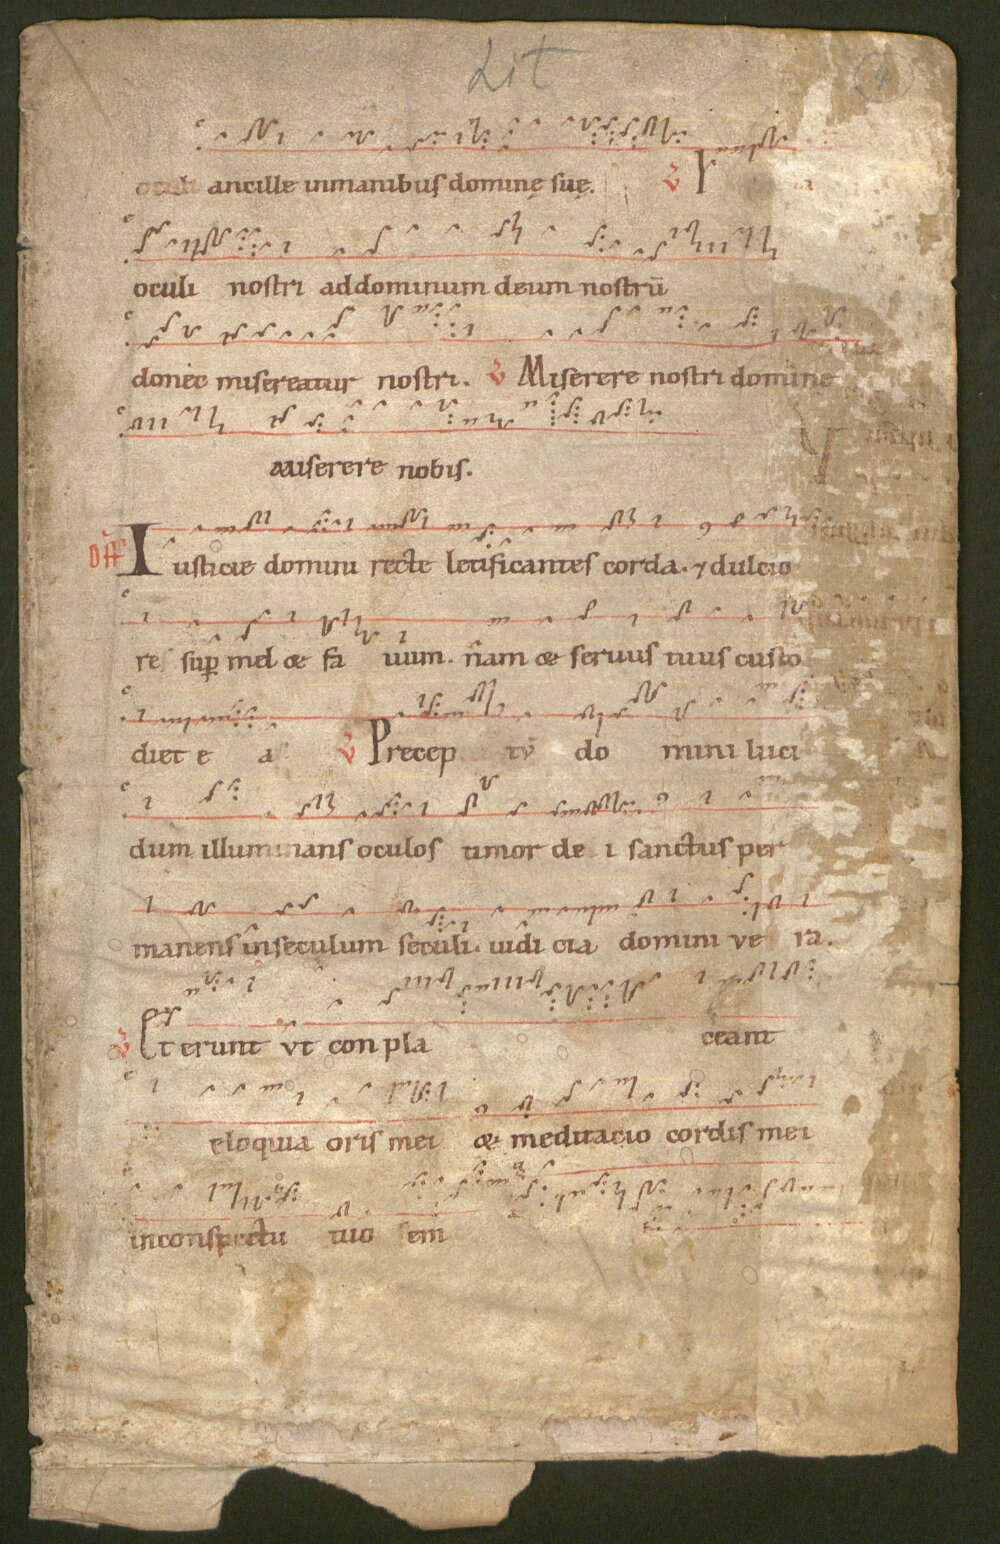 Lit
4
oculi ancille in manibus dominę suę. V I
oculi nostri ad dominum deum nostrū
donec misereatur nostri. V Miserere nostri domine
miserere nobis.
off Iusticie domini recte letificantes corda. ⁊ dulcio
res sup mel & fa uum. nam & seruus tuus custo
diet e a V Precep tū do mini luci
dum illuminans oculos timor de i sanctus per
manens in seculum seculi. iudi cia domini ve ra.
V Et erunt vt con pla ceant
eloquia oris mei & meditacio cordis mei
in conspectu tuo sem